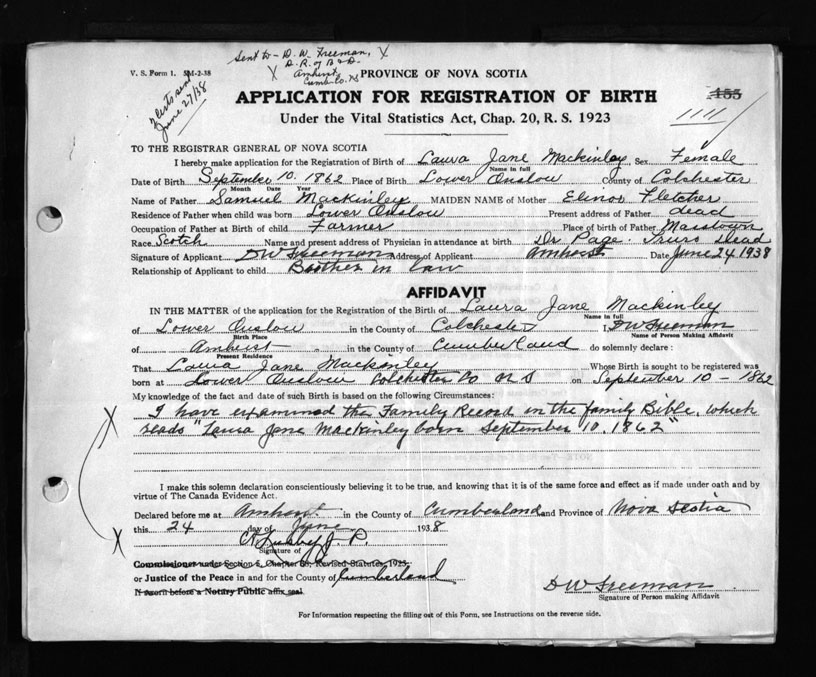 Sent to - D. W. Freeman, X
D. R. of B & D.
X Amherst,
Cumb. Co. NS
V. S. Form 1. 5M-2-38
sent
June 27/38
PROVINCE OF NOVA SCOTIA
APPLICATION FOR REGISTRATION OF BIRTH
155
1111
Under the Vital Statistics Act, Chap. 20, R. S. 1923
TO THE REGISTRAR GENERAL OF NOVA SCOTIA
I hereby make application for the Registration of Birth of Laura Jane Mackinley Sex Female
Name in full
Date of Birth September 10. 1862 Place of Birth Lower Onslow County of Colchester
Month Date Year
Name of Father Samuel Mackinley MAIDEN NAME of Mother Elinor Fletcher
Residence of Father when child was born Lower Onslow Present address of Father dead
Occupation of Father at Birth of child Farmer Place of birth of Father Masstown
Race Scotch Name and present address of Physician in attendance at birth Dr Page. Truro Dead
Signature of Applicant DW Freeman Address of Applicant Amherst Date June 24 1938
Relationship of Applicant to child Brother in law
AFFIDAVIT
IN THE MATTER of the application for the Registration of the Birth of Laura Jane Mackinley
Name in full
of Lower Onslow in the County of Colchester I, DW Freeman
Birth Place Name of Person Making Affidavit
of Amherst in the County of Cumberland do solemnly declare :
Present Residence
That Laura Jane Mackinley Whose Birth is sought to be registered was
born at Lower Onslow Colchester Co N S on September 10 - 1862
My knowledge of the fact and date of such Birth is based on the following Circumstances:
X I have examined the Family Record in the family Bible, which
reads "Laura Jane Mackinley born September 10. 1862"
I make this solemn declaration conscientiously believing it to be true, and knowing that it is of the same force and effect as if made under oath and by
virtue of The Canada Evidence Act.
Declared before me at Amherst in the County of Cumberland and Province of Nova Scotia
this 24 day of June 1938
X Lusby J. P.
Signature of
Commissioner under Section 5, Chapter 38, Revised Statutes, 1923
or Justice of the Peace in and for the County of Cumberland
If sworn before a Notary Public affix seal
DW Freeman
Signature of Person making Affidavit
For Information respecting the filling out of this Form, see Instructions on the reverse side.